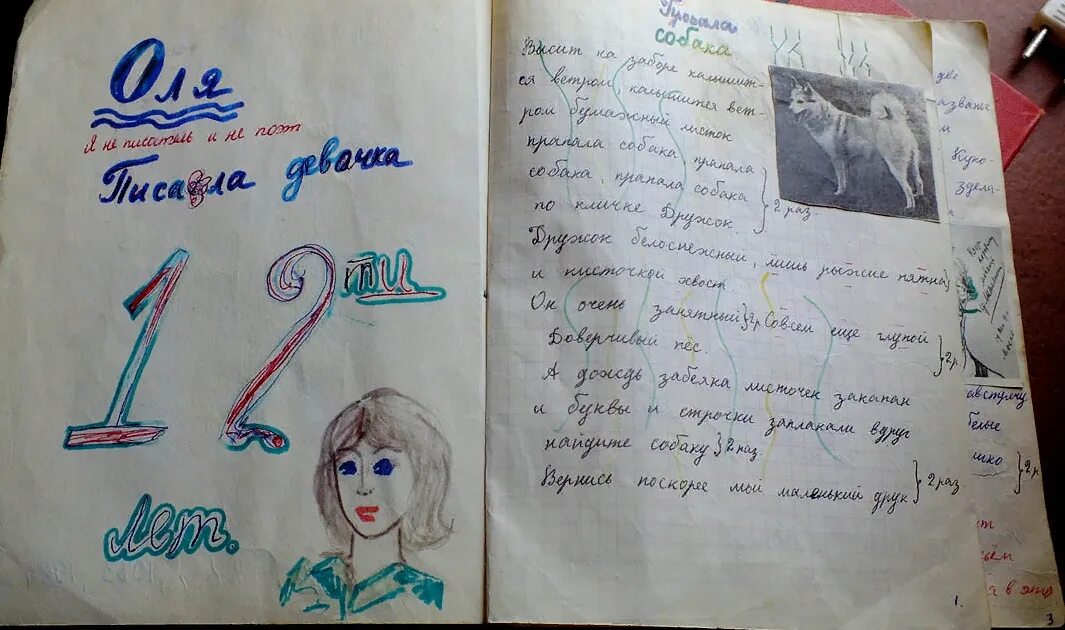 Оля
Я не писатель и не поэт
Писала девачка
12 ти
лет.
Пропала
собака
Висит на заборе калышит-
ся ветром, калышится вет-
ром бумажный листок
прапала собака прапала
собака, прапала собака } 2 раз.
по кличке Дружок.
Дружок белоснежный, лишь рыжие пятна}
и писточкой хвост.
Он очень занятный}2р Совсем ещё глупой
Доверчивый пёс. }2р
А дождь забеяка листочек закапан
и буквы и строчки заплакали вдруг
найдите собаку}2 раз.
Вернись поскорее мой маленький друк }2 раз.
1.
две
м
Куко-
здела-
австречу
белые
}2р
я в это
3